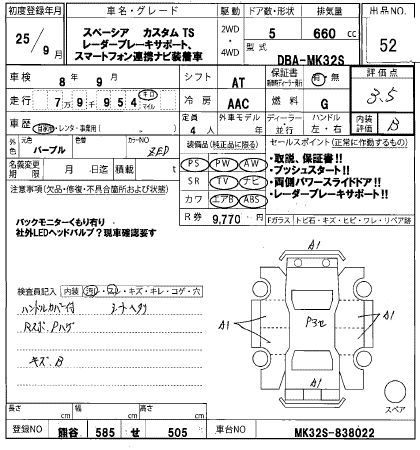 初度登録年月 車名・グレード 駆動 ドア数・形状 排気量 出品NO.
25/9月 スペーシア カスタムTS 2WD・4WD 5 660cc 52
レーダーブレーキサポート、 型式
スマートフォン連携ナビ装着車 DBA-MK32S
車検 8年9月 シフト AT 保証書 有・無 評価点
走行 7万9千954 キロ マイル 冷房 AAC 燃料 G 3.5
車歴 自家用・レンタ・事業用( ) 定員 4人 外車モデル 年 ディーラー・並行 ハンドル 左・右 内装評価 B
外色 元色 パープル 色 カラーNO ZED 装備品(純正品に限る) セールスポイント(正常に作動するもの)
名義変更期限 月 日迄 積込 PS PW AW ・取説、保証書!!
注意事項(欠品・修復・不具合箇所および状態) SR TV ナビ ・プッシュスタート!!
カワ エアB ABS ・両側パワースライドドア!!
・レーダーブレーキサポート!!
R券 9,770円 Fガラス トビ石・キズ・ヒビ・ワレ・リペア跡
バックモニターくもり有り
社外LEDヘッドバルブ?現車確認要す
検査員記入 内装 汚レ・スレ・キズ・キレ・コゲ・穴
ハンドルカバー付 シートヘタリ
Rスポ、Pハゲ
キズ、B
A1
A1 P3セ A1
A1
スペア
長さ cm 幅 cm 高さ cm
登録NO 熊谷 585 せ 505 車台NO MK32S-838022